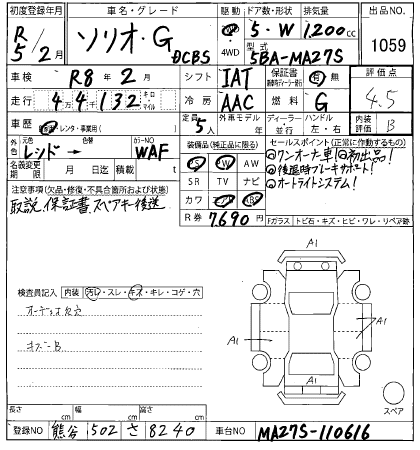 初度登録年月 車名・グレード 駆動 ドア数・形状 排気量 出品NO.
R5/2月 ソリオ・G DCBS 4WD 5・W 1,200cc 1059
型式 5BA-MA27S
車検 R8年2月 シフト IAT 保証書 有・無 評価点
走行 44,132 キロ マイル 冷房 AAC 燃料 G 4.5
車歴 レンタ・事業用( ) 定員 5人 外車モデル 年 ディーラー 並行 ハンドル 左・右 内装 B
外色 元色 レッド → 色替 カラーNO WAF 装備品(純正品に限る) セールスポイント(正常に作動するもの)
PS PW AW ◎ワンオーナー車!◎初出品!
名義変更期限 月 日迄 積載 t SR TV ナビ ◎後退時ブレーキサポート!
注意事項(欠品・修復・不具合箇所および状態) カワ ◎オートライトシステム!
取説、保証書、スペアキー後送 R券 7,690円
Fガラス トビ石・キズ・ヒビ・ワレ・リペア跡
検査員記入 内装 汚レ・スレ・キズ・キレ・コゲ・穴
A1
A1
A1
A1
キズーB
スペア
長さ cm 幅 cm 高さ cm
登録NO 熊谷 502 さ 8240 車台NO MA27S-110616